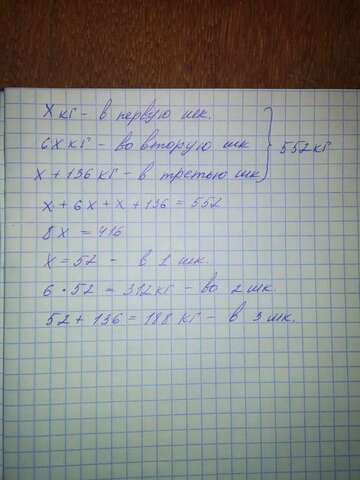 x кг - в первую шк.
6x кг - во вторую шк
x + 136 кг - в третью шк
552 кг
x + 6x + x + 136 = 552
8x = 416
x = 52 - в 1 шк.
6 · 52 = 312 кг - во 2 шк.
52 + 136 = 188 кг - в 3 шк.